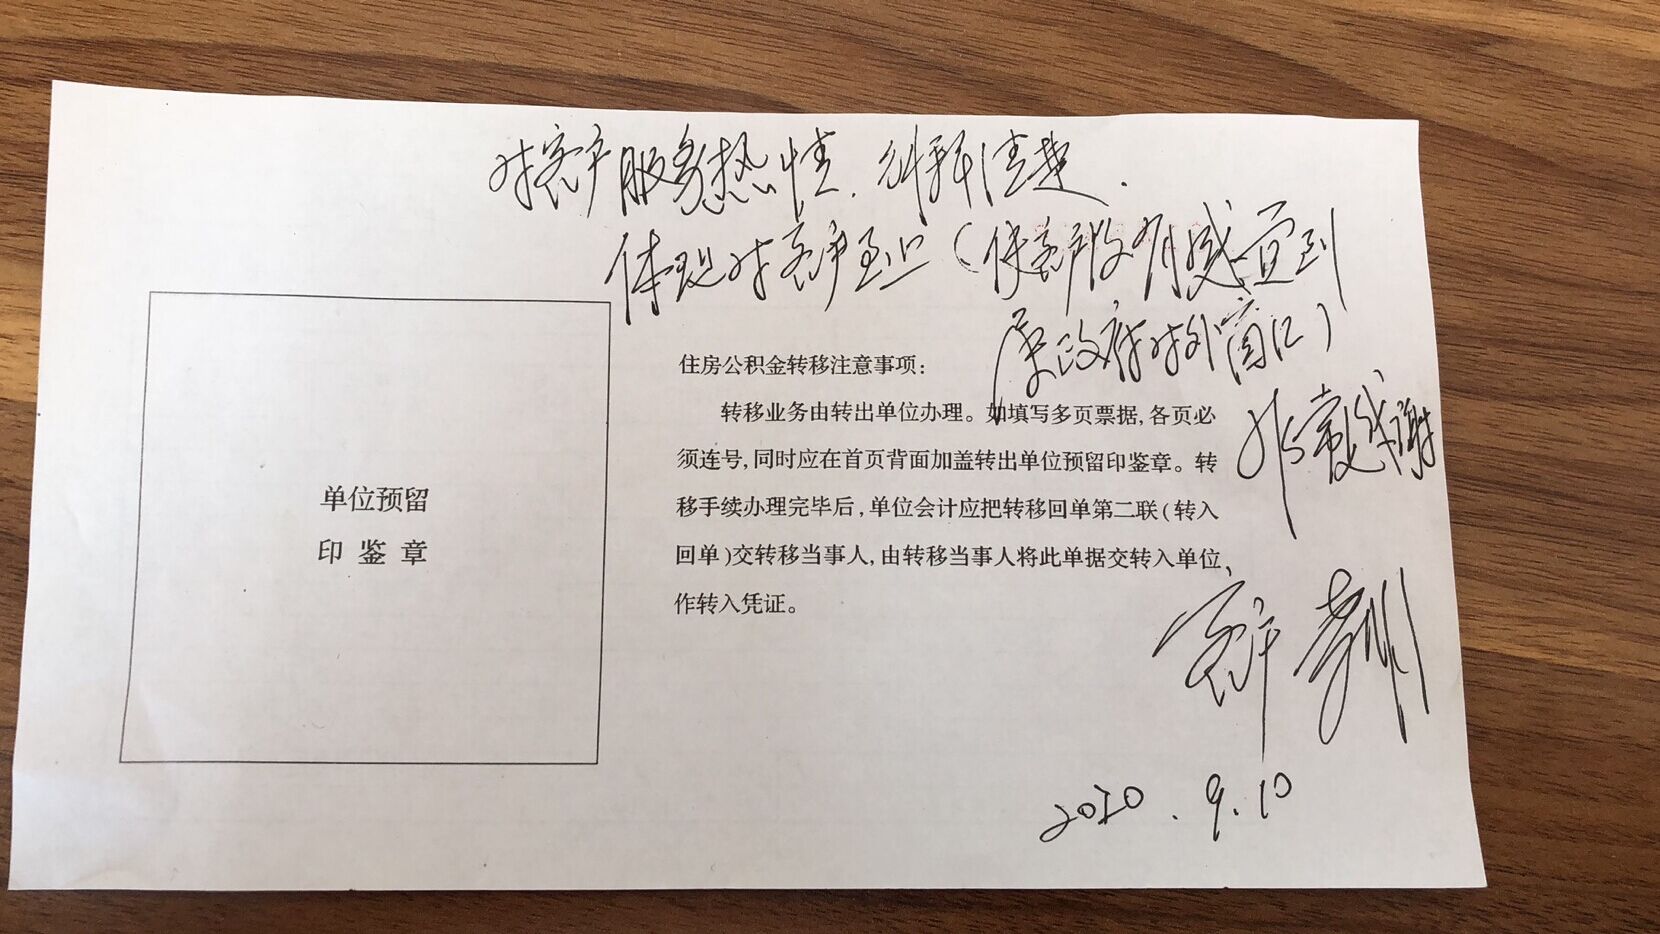 对客户服务热情、讲解清楚.
体现对客户至上(使客户没有感觉到
是政府对外窗口)
非常感谢
客户
2020.9.10
单位预留
印鉴章
住房公积金转移注意事项:
转移业务由转出单位办理。如填写多页票据,各页必
须连号,同时应在首页背面加盖转出单位预留印鉴章。转
移手续办理完毕后,单位会计应把转移回单第二联(转入
回单)交转移当事人,由转移当事人将此单据交转入单位、
作转入凭证。